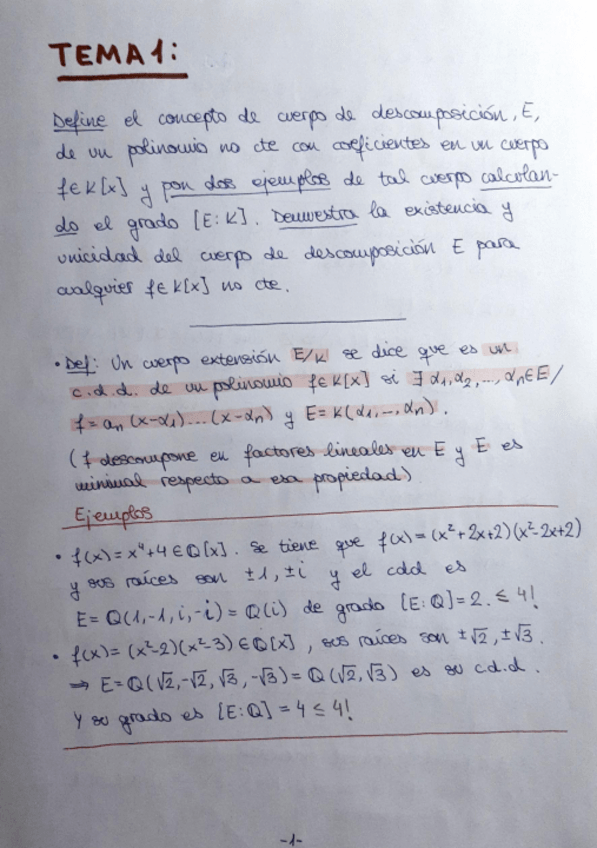 TEMA 1:
Define el concepto de cuerpo de descomposición, E,
de un polinomio no cte con coeficientes en un cuerpo
f∈K[x] y pon dos ejemplos de tal cuerpo calculan-
do el grado [E:K]. Demuestra la existencia y
unicidad del cuerpo de descomposición E para
cualquier f∈K[x] no cte.
• Def: Un cuerpo extensión E/K se dice que es un
c.d.d. de un polinomio f∈K[x] si ∃ α₁,α₂,...,αₙ∈E/
f=aₙ(x-α₁)...(x-αₙ) y E=K(α₁,...,αₙ).
(f descompone en factores lineales en E y E es
minimal respecto a esa propiedad)
Ejemplos
• f(x)=x⁴+4∈Q[x]. Se tiene que f(x)=(x²+2x+2)(x²-2x+2)
y sus raíces son ±1,±i y el cdd es
E=Q(1,-1,i,-i)=Q(i) de grado [E:Q]=2.≤4!
• f(x)=(x²-2)(x²-3)∈Q[x], sus raíces son ±√2,±√3.
⇒ E=Q(√2,-√2,√3,-√3)=Q(√2,√3) es su c.d.d.
Y su grado es [E:Q]=4≤4!
-1-